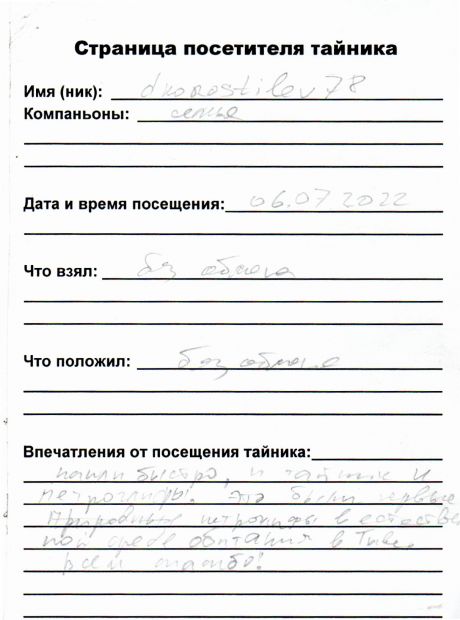 Страница посетителя тайника
Имя (ник): dkorostilev78
Компаньоны: семья
Дата и время посещения: 06.07 2022
Что взял: без обмена
Что положил: без обмена
Впечатления от посещения тайника:
нашли быстро, и тайник и
петроглифы. Это были первые
природные петроглифы в естествен
ной среде обитания в Тыве.
Всем спасибо!